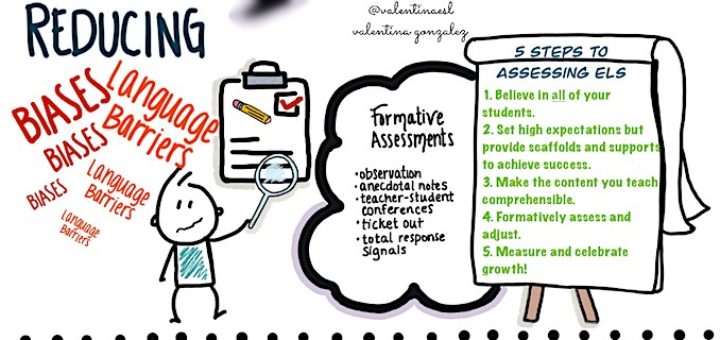 REDUCING
BIASES
Language
Barriers
BIASES
Language
Barriers
BIASES
Language
Barriers
@valentinaesl
valentina gonzalez
Formative
Assessments
•observation
•anecdotal notes
•teacher-student
conferences
•ticket out
•total response
signals
5 STEPS TO
ASSESSING ELS
1. Believe in all of your
students.
2. Set high expectations but
provide scaffolds and supports
to achieve success.
3. Make the content you teach
comprehensible.
4. Formatively assess and
adjust.
5. Measure and celebrate
growth!